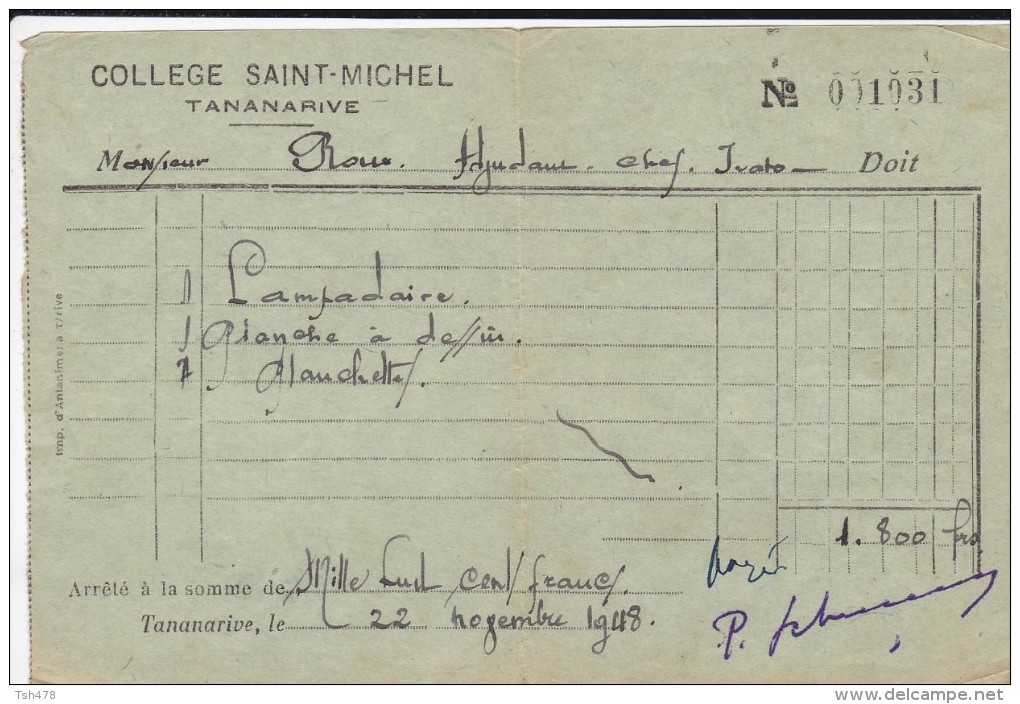 COLLEGE SAINT-MICHEL
TANANARIVE
№ 001031
Monsieur Adjudant-chef. Ivato Doit
1 Lampadaire.
1 Planche à dessin.
Planchettes.
1.800 frs
Arrêté à la somme de Mille huit cents francs
payé
Tananarive, le 22 novembre 1948.
P.
Imp. d'Antanimena T/rive
Tsh478
www.delcampe.net